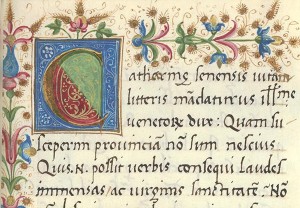 Catharinę senensis uitam
litteris mādaturus illme
uenetorę dux: Quam su
sceperim prouinciā nō sum nescius
Quis .N. possit uerbis consequi laudes
immensas ac uirginis sanctitatē? Nō